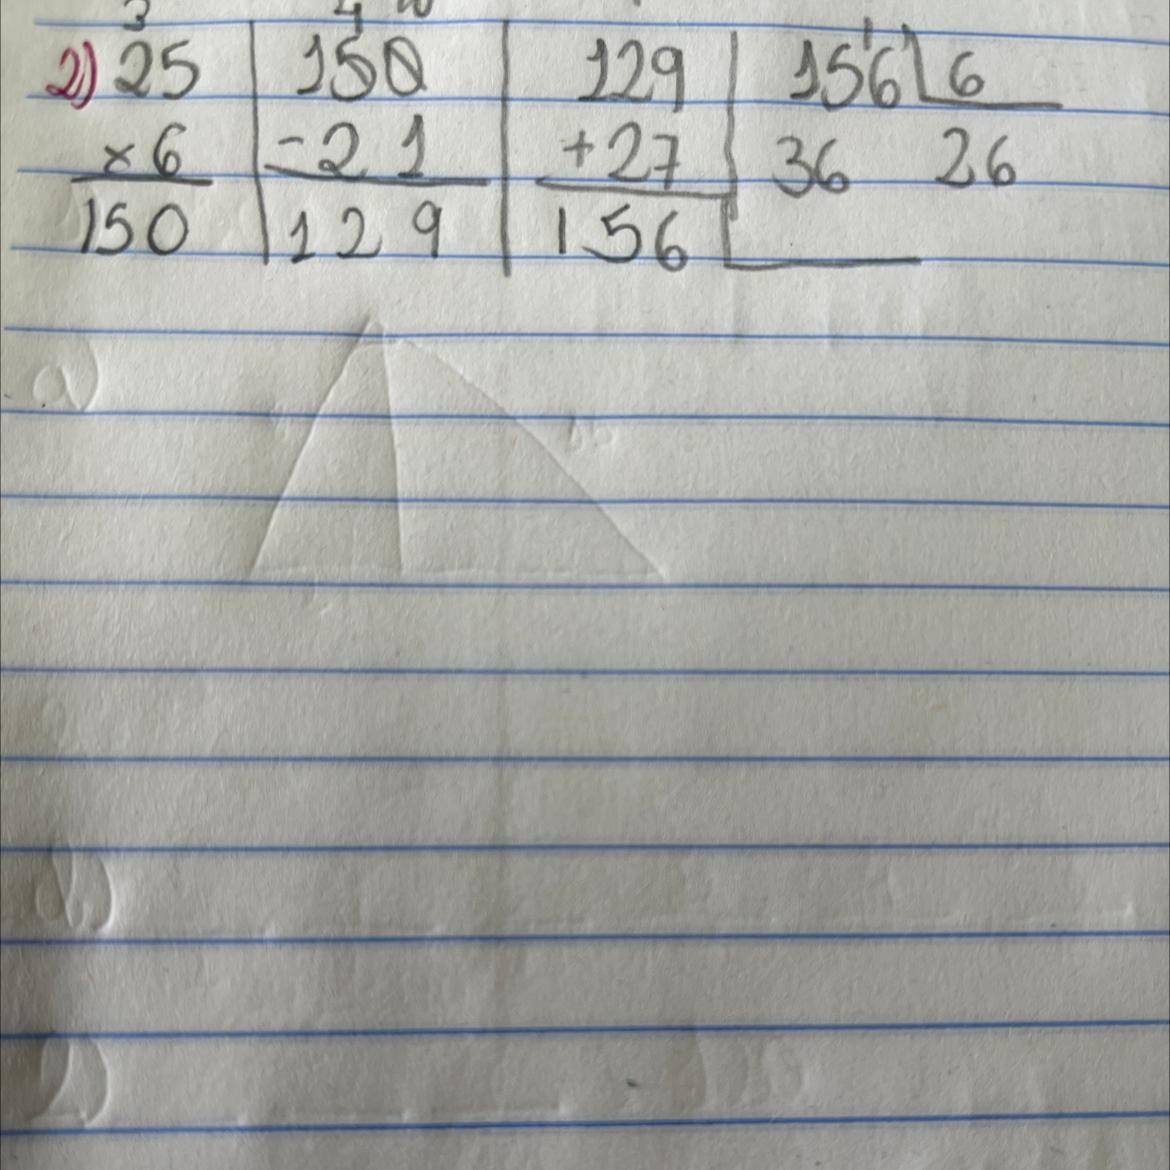 3 4 10 1
2) 25 150 129 156 6
×6 -21 +27 36 26
150 129 156